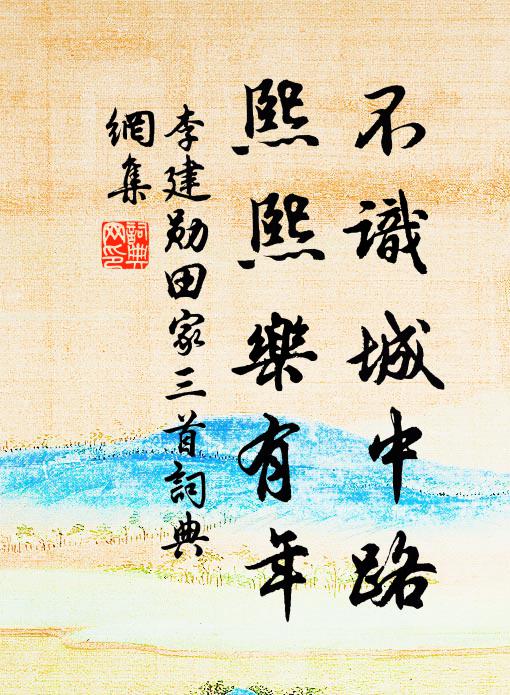 不識城中路
熙熙樂有年
李建勛田家三首詞典
網集
詞典
网印